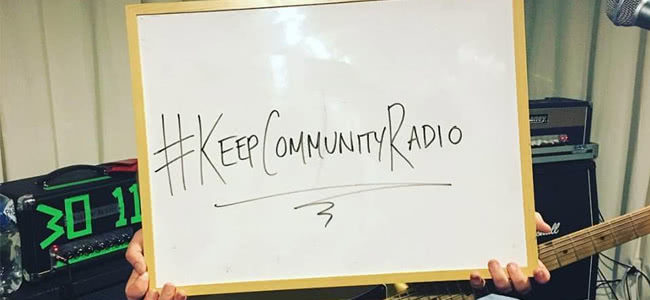 #KeepCommunityRadio
30 11